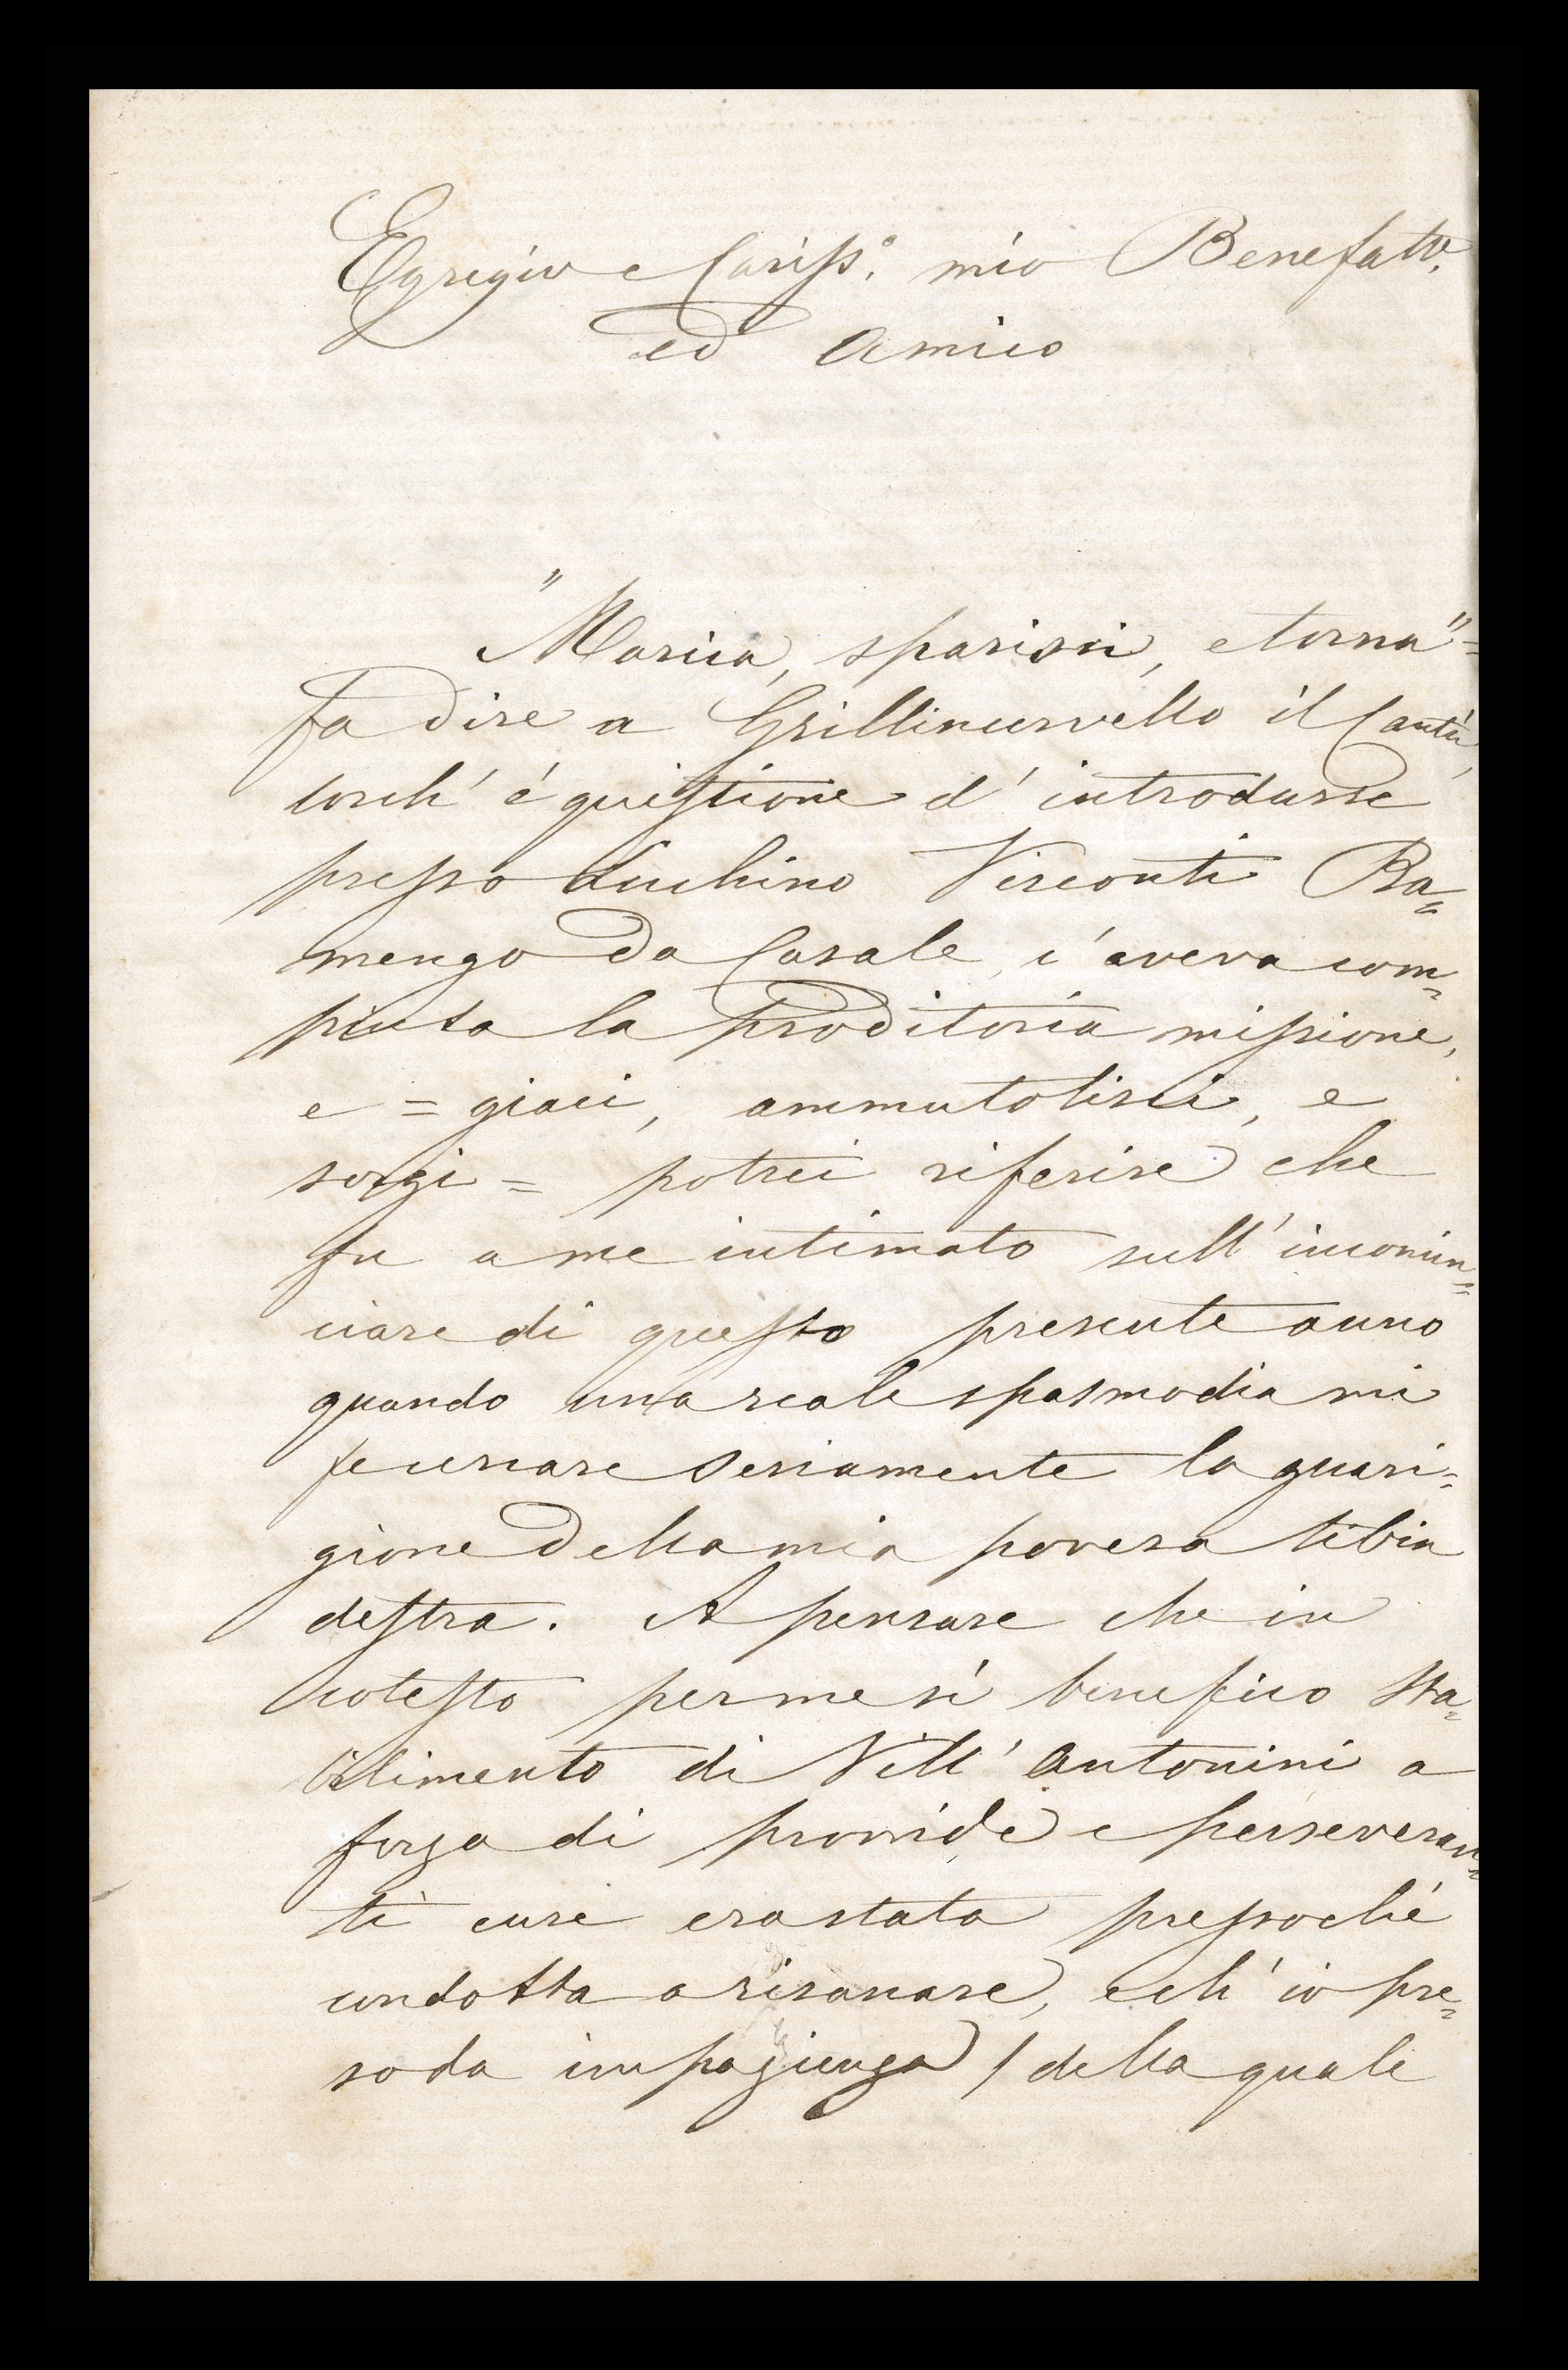 Egregio e Cariss.º mio Benefatt.e
ed Amico
"Marcia, sparisci, e torna"=
fa dire a Grillincervello il Cantù,
lorch' é quistione d' introdurre
presso Luchino Visconti Ra=
mengo da Casale, c' aveva com=
piuta la proditoria missione,
e = giaci, ammutolisci, e
sorgi = potrei riferire che
fu a me intimato sull' incomin=
ciare di questo presente anno
quando una reale spasmodia mi
fe cercare seriamente la guari=
gione della mia povera tibia
destra. A pensare che in
cotesto per me sì benefico Sta=
bilimento di Vill' Antonini a
forza di provvide e perseveran=
ti cure era stata pressoché
condotta a risanare, e ch' io pre=
so da impazienza / della quale